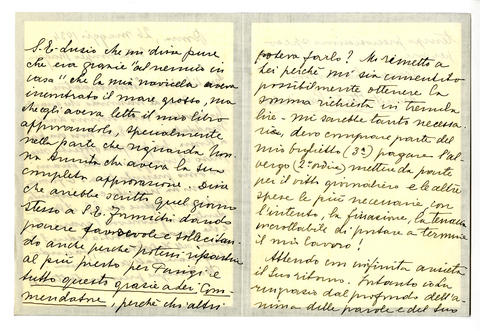 S. E. Lusio che mi disse pure
che era grazie "al nemico in
casa" che la mia navicella aveva
incontrato il mare grosso, ma
che egli aveva letto il mio libro
approvandolo, specialmente
nella parte che riguarda
che aveva la sua
completa approvazione. Disse
che avrebbe scritto quel giorno
stesso a S. E. dando
parere favorevole e sollecitan-
do anche perché potessi ripartire
al più presto per Parigi e
tutto questo grazie a lei Com-
mendatore, perché chi altri
poteva farlo? Mi rimetto a
Lei perché mi sia consentito
possibilmente ottenere la
somma richiesta in tremila
lire - mi sarebbe tanto necessa-
ria, devo comprare parte del
mio biglietto (3ª) pagare l'al-
bergo (2º ordine) mettere da parte
per il vitto giornaliero e le altre
spese le più necessarie, con
l'intento, la fissazione, la tenacia
incrollabile di portare a termine
il mio lavoro!
Attendo con infinita ansietà
il Suo ritorno. Intanto La
ringrazio dal profondo dell'a-
nima delle parole e del suo